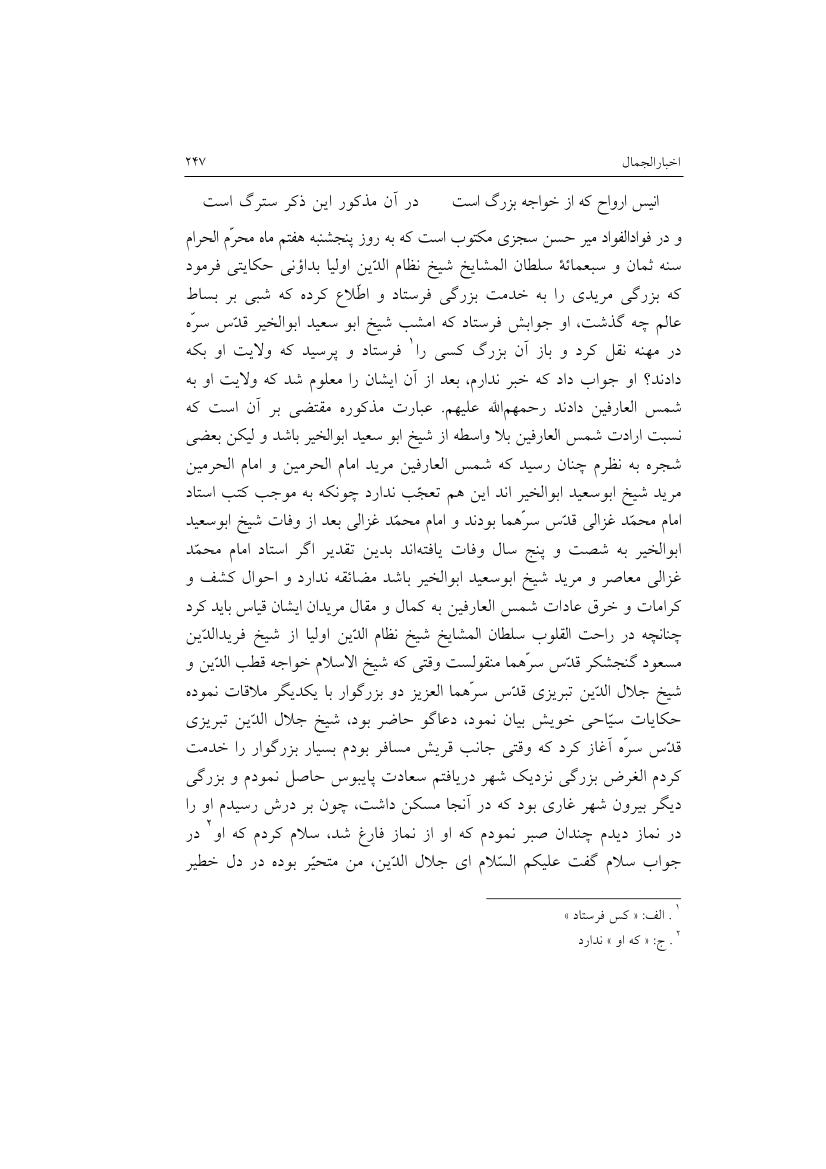 اخبارالجمال ۲۴۷
انیس ارواح که از خواجه بزرگ است در آن مذکور این ذکر سترگ است
و در فوادالفواد میر حسن سجزی مکتوب است که به روز پنجشنبه هفتم ماه محرّم الحرام
سنه ثمان و سبعمائهٔ سلطان المشایخ شیخ نظام الدّین اولیا بداؤنی حکایتی فرمود
که بزرگی مریدی را به خدمت بزرگی فرستاد و اطّلاع کرده که شبی بر بساط
عالم چه گذشت، او جوابش فرستاد که امشب شیخ ابو سعید ابوالخیر قدّس سرّه
در مهنه نقل کرد و باز آن بزرگ کسی را۱ فرستاد و پرسید که ولایت او بکه
دادند؟ او جواب داد که خبر ندارم، بعد از آن ایشان را معلوم شد که ولایت او به
شمس العارفین دادند رحمهم‌الله علیهم. عبارت مذکوره مقتضی بر آن است که
نسبت ارادت شمس العارفین بلا واسطه از شیخ ابو سعید ابوالخیر باشد و لیکن بعضی
شجره به نظرم چنان رسید که شمس العارفین مرید امام الحرمین و امام الحرمین
مرید شیخ ابوسعید ابوالخیر اند این هم تعجّب ندارد چونکه به موجب کتب استاد
امام محمّد غزالی قدّس سرّهما بودند و امام محمّد غزالی بعد از وفات شیخ ابوسعید
ابوالخیر به شصت و پنج سال وفات یافته‌اند بدین تقدیر اگر استاد امام محمّد
غزالی معاصر و مرید شیخ ابوسعید ابوالخیر باشد مضائقه ندارد و احوال کشف و
کرامات و خرق عادات شمس العارفین به کمال و مقال مریدان ایشان قیاس باید کرد
چنانچه در راحت القلوب سلطان المشایخ شیخ نظام الدّین اولیا از شیخ فریدالدّین
مسعود گنجشکر قدّس سرّهما منقولست وقتی که شیخ الاسلام خواجه قطب الدّین و
شیخ جلال الدّین تبریزی قدّس سرّهما العزیز دو بزرگوار با یکدیگر ملاقات نموده
حکایات سیّاحی خویش بیان نمود، دعاگو حاضر بود، شیخ جلال الدّین تبریزی
قدّس سرّه آغاز کرد که وقتی جانب قریش مسافر بودم بسیار بزرگوار را خدمت
کردم الغرض بزرگی نزدیک شهر دریافتم سعادت پایبوس حاصل نمودم و بزرگی
دیگر بیرون شهر غاری بود که در آنجا مسکن داشت، چون بر درش رسیدم او را
در نماز دیدم چندان صبر نمودم که او از نماز فارغ شد، سلام کردم که او۲ در
جواب سلام گفت علیکم السّلام ای جلال الدّین، من متحیّر بوده در دل خطیر
۱. الف: « کس فرستاد »
۲. ج: « که او » ندارد